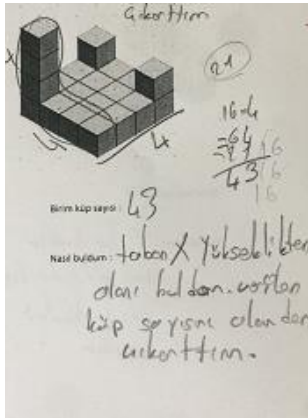 çıkarttım
21
4
16.4
=64
21
43
Birim küp sayısı : 43
Nasıl buldum : taban X yükseklikten
alanı buldum.
küp sayısını alandan
çıkarttım.